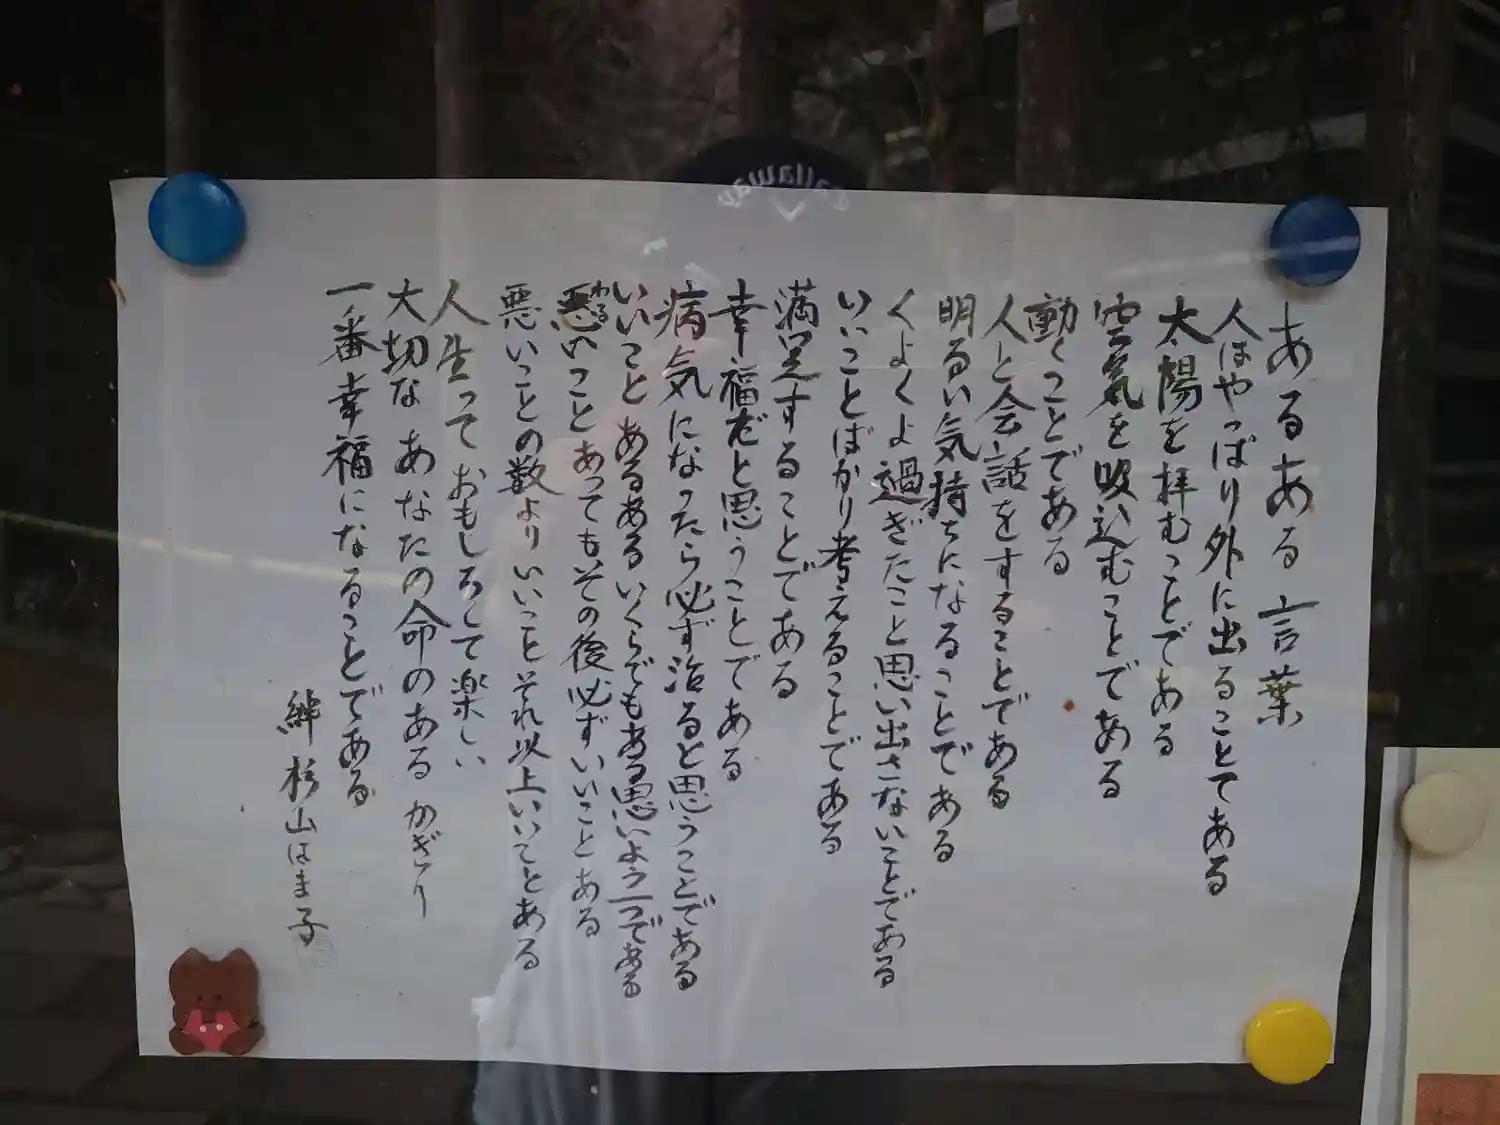 あるある言葉
人はやっぱり外に出ることである
太陽を拝むことである
空気を吸込むことである
動くことである
人と会話をすることである
明るい気持ちになることである
くよくよ過ぎたこと思い出さないことである
いいことばかり考えることである
満足することである
幸福だと思うことである
病気になったら必ず治ると思うことである
いいことあるあるあるいくらでもある思いよう一つである
悪いことあってもその後必ずいいことある
わる
悪いことの数よりいいことそれ以上いいことある
人生っておもしろくて楽しい
大切なあなたの命のあるかぎり
一番幸福になることである
絆 杉山はま子